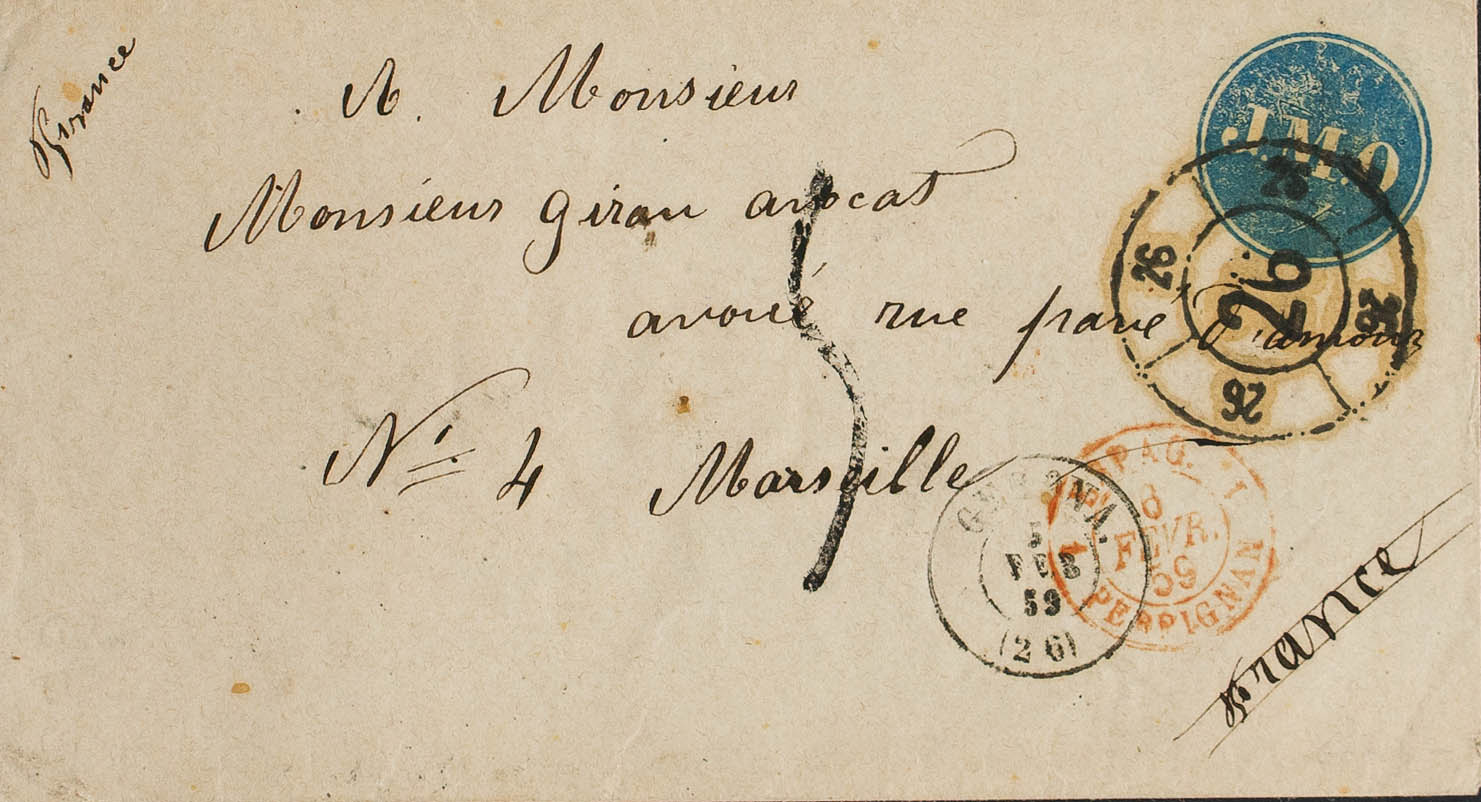 France
A. Monsieur
Monsieur giran avocat
avoué rue pavé d'amour
N° 4 Marseille
J.M.O
26
26
26
26
26
GERONA.
5
FEB
59
(26)
ESPAG.
6
FEVR.
59
PERPIGNAN
5
France